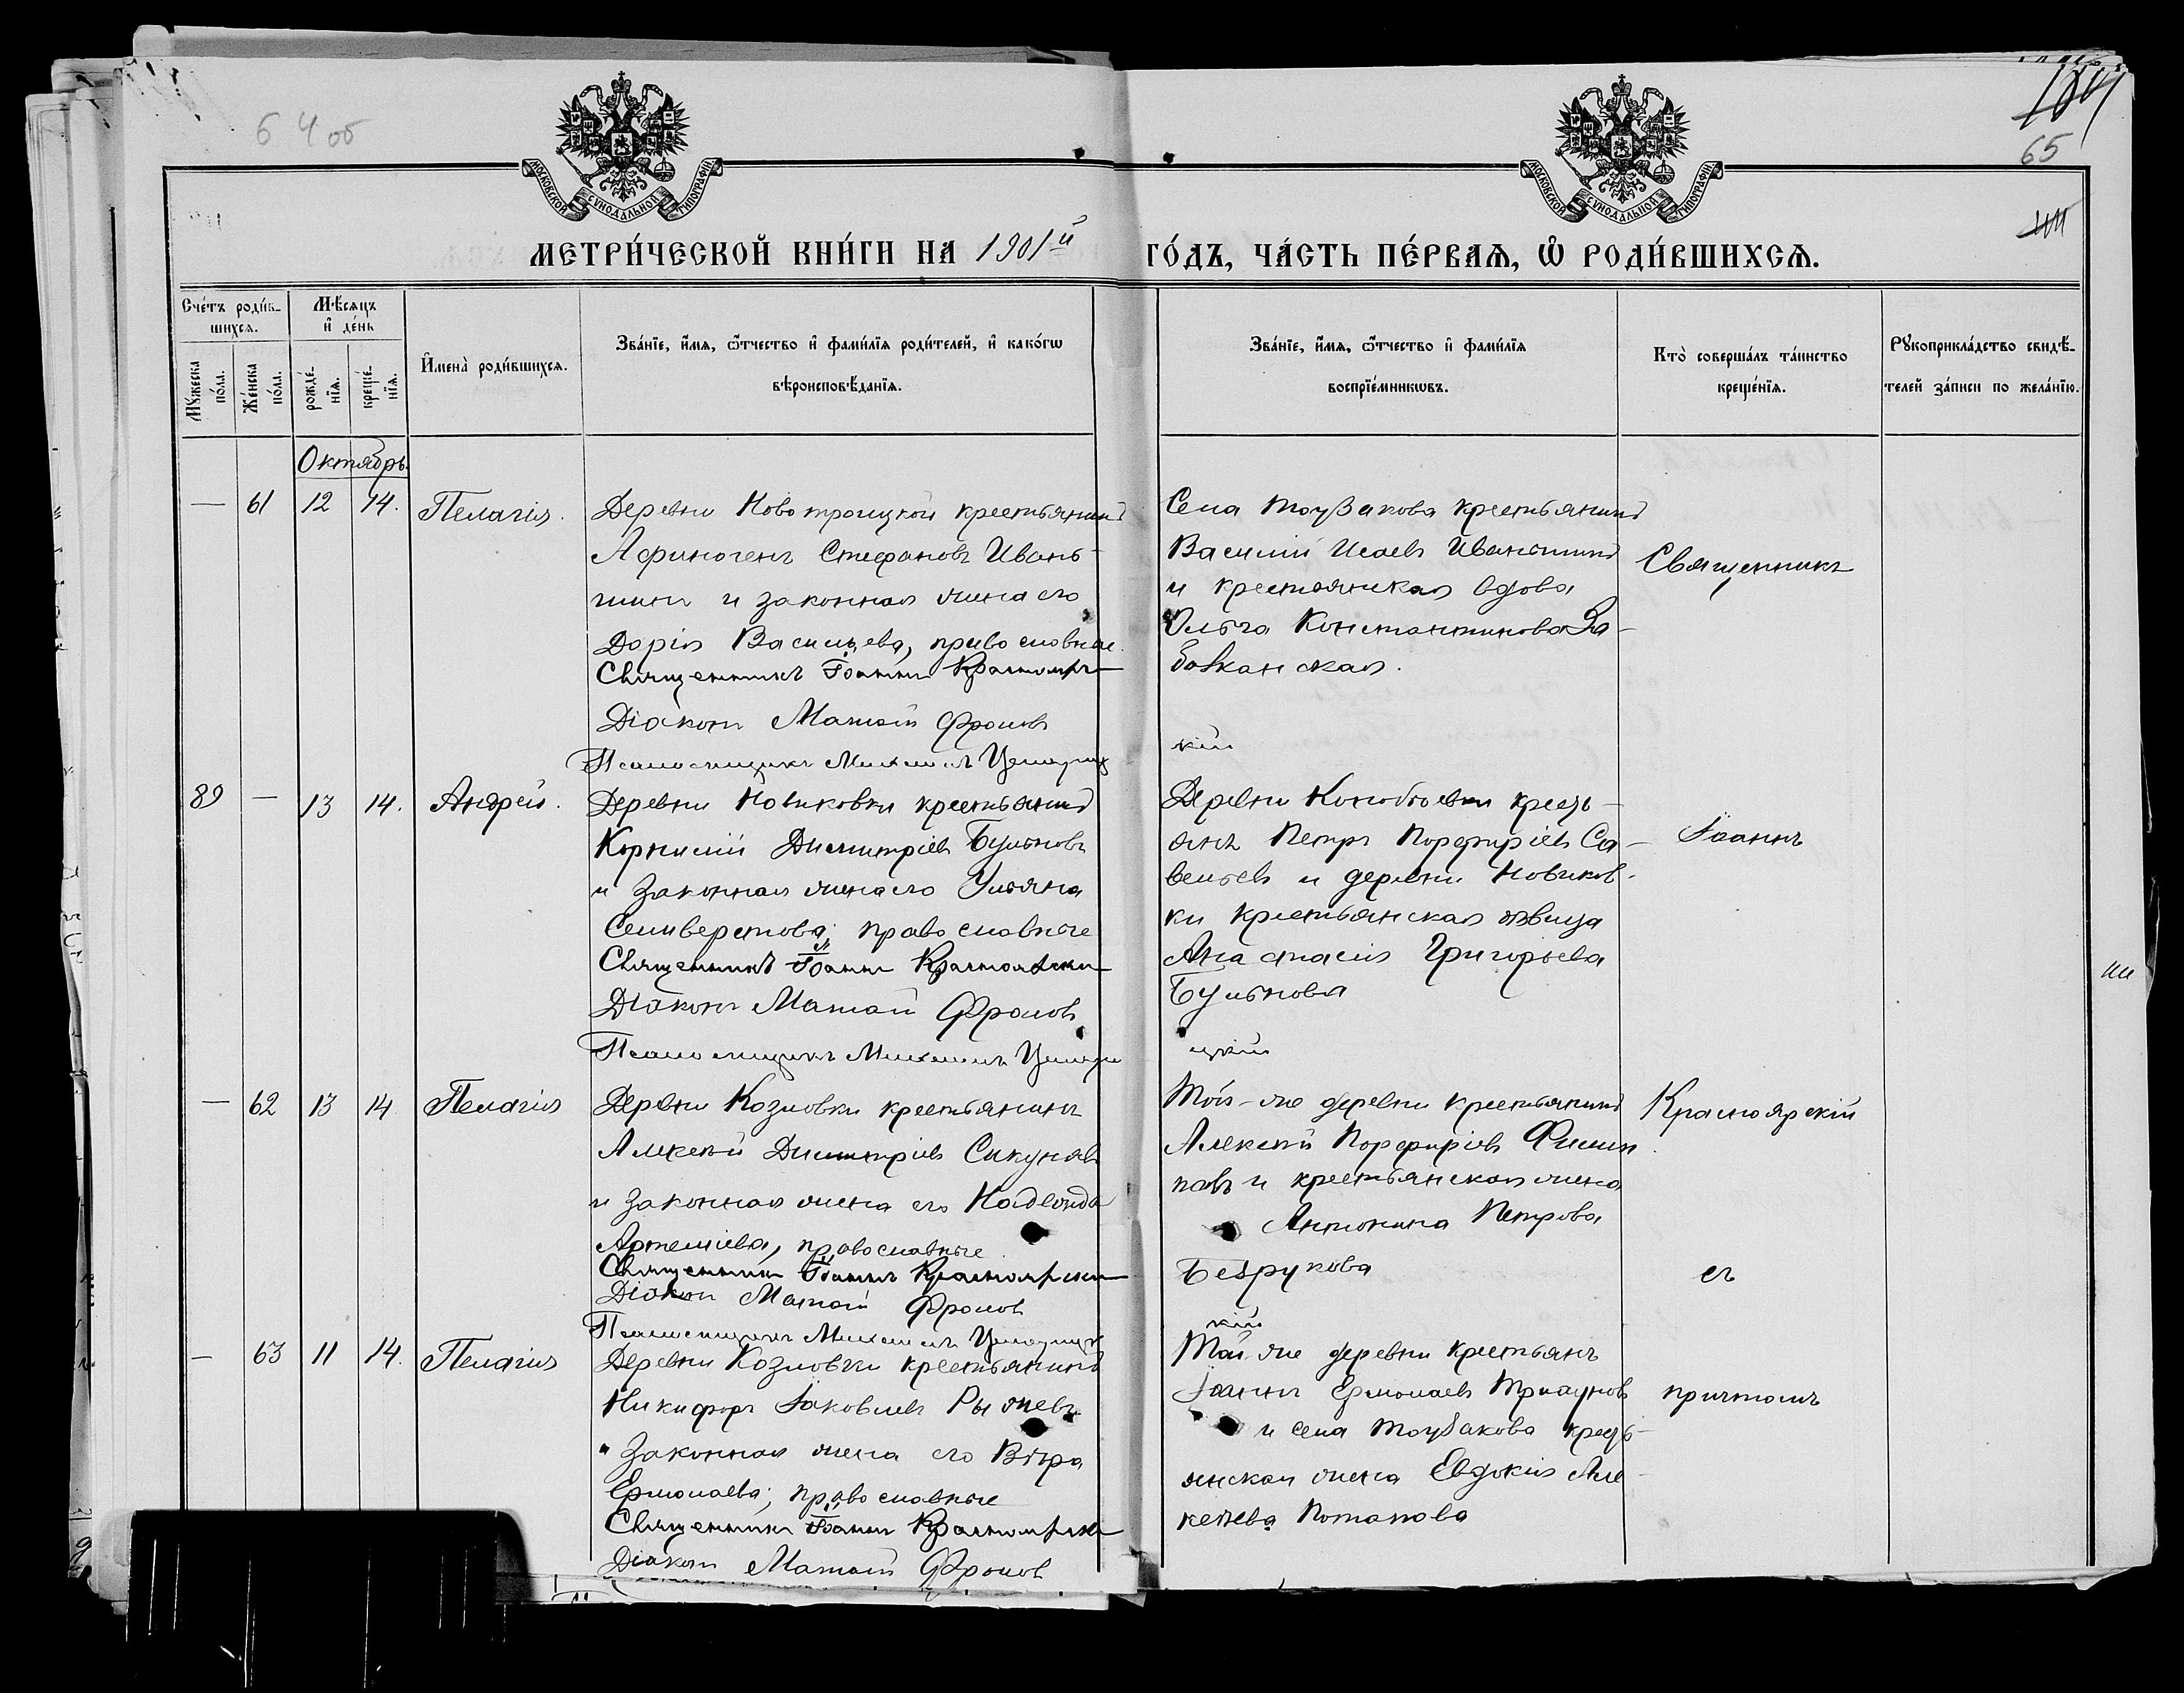 64об
65
МОСКОВСКОЙ СѴНОДАЛЬНОЙ ТИПОГРАФІИ
МОСКОВСКОЙ СѴНОДАЛЬНОЙ ТИПОГРАФІИ
МЕТРИ́ЧЕСКОЙ КНИ́ГИ НА 1901й ГО́ДЪ, ЧА́СТЬ ПЕ́РВАѦ, Ѡ҆ РОДИ́ВШИХСѦ.
Сче́тъ роди́в-
шихсѧ.
Мꙋжеска по́ла.
Же́нска по́ла.
Мѣ́сѧцъ
и҆ де́нь
рожде́-
нїѧ.
креще́-
нїѧ.
И҆мена̀ роди́вшихсѧ.
Зва́нїе, и҆́мѧ, ѻ҆́тчество и҆ фами́лїѧ роди́телей, и҆ како́гѡ
вѣроисповѣ́данїѧ.
Зва́нїе, и҆́мѧ, ѻ҆́тчество и҆ фами́лїѧ
воспрїе́мникѡвъ.
Кто̀ соверша́лъ та́инство
креще́нїѧ.
Рꙋкоприкла́дство свидѣ́-
телей за́писи по жела́нїю.
Октябрь.
— 61 12 14. Пелагія.
Деревни Новотроицкой крестьянинъ
Афиногенъ Стефановъ Ивань-
шинъ и законная жена его
Дарія Васильева, православные.
Священникъ Іоаннъ Краснояр-
Діаконъ Матѳій Фроловъ
Псаломщикъ Михаилъ
Села Тоузакова крестьянинъ
Василій Исаевъ Иваньшинъ
и крестьянская вдова
Ольга Константинова За-
балканская.
кій
Священникъ
89 — 13 14. Андрей.
Деревни Новиковки крестьянинъ
Корнилій Димитріевъ Бульновъ
и законная жена его Ульяна
Селиверстова; православные
Священникъ Іоаннъ Красноярскій
Діаконъ Матѳій Фроловъ
Псаломщикъ Михаилъ
Деревни кресть-
янинъ Петръ Порфиріевъ Са-
вельевъ и деревни Новиков-
ки крестьянская дѣвица
Анастасія Григорьева
Бульнова
цкій
Іоаннъ
— 62 13 14 Пелагія
Деревни Козловки крестьянинъ
Алексѣй Димитріевъ Сикуновъ
и законная жена его Надежда
Артемиева, православные
Священникъ Іоаннъ Краснояр
Діаконъ Матѳій Фроловъ
Псаломщикъ Михаилъ
Той-же деревни крестьянинъ
Алексѣй Порфиріевъ Филип
повъ и крестьянская жена
Антонина Петрова
Безрукова
кій
Красноярскій
съ
— 63 11 14. Пелагія
Деревни Козловки крестьянинъ
Никифоръ Іаковлевъ Рыжевъ
и законная жена его Вѣра
Ермолаева; православные
Священникъ Іоаннъ Краснояр
Діаконъ Матѳій Фроловъ
Той-же деревни крестьянъ
Іоаннъ Ермолаевъ
и села Тоузакова кресть-
янская жена Евдокія Але-
ксѣева Потапова
причтомъ